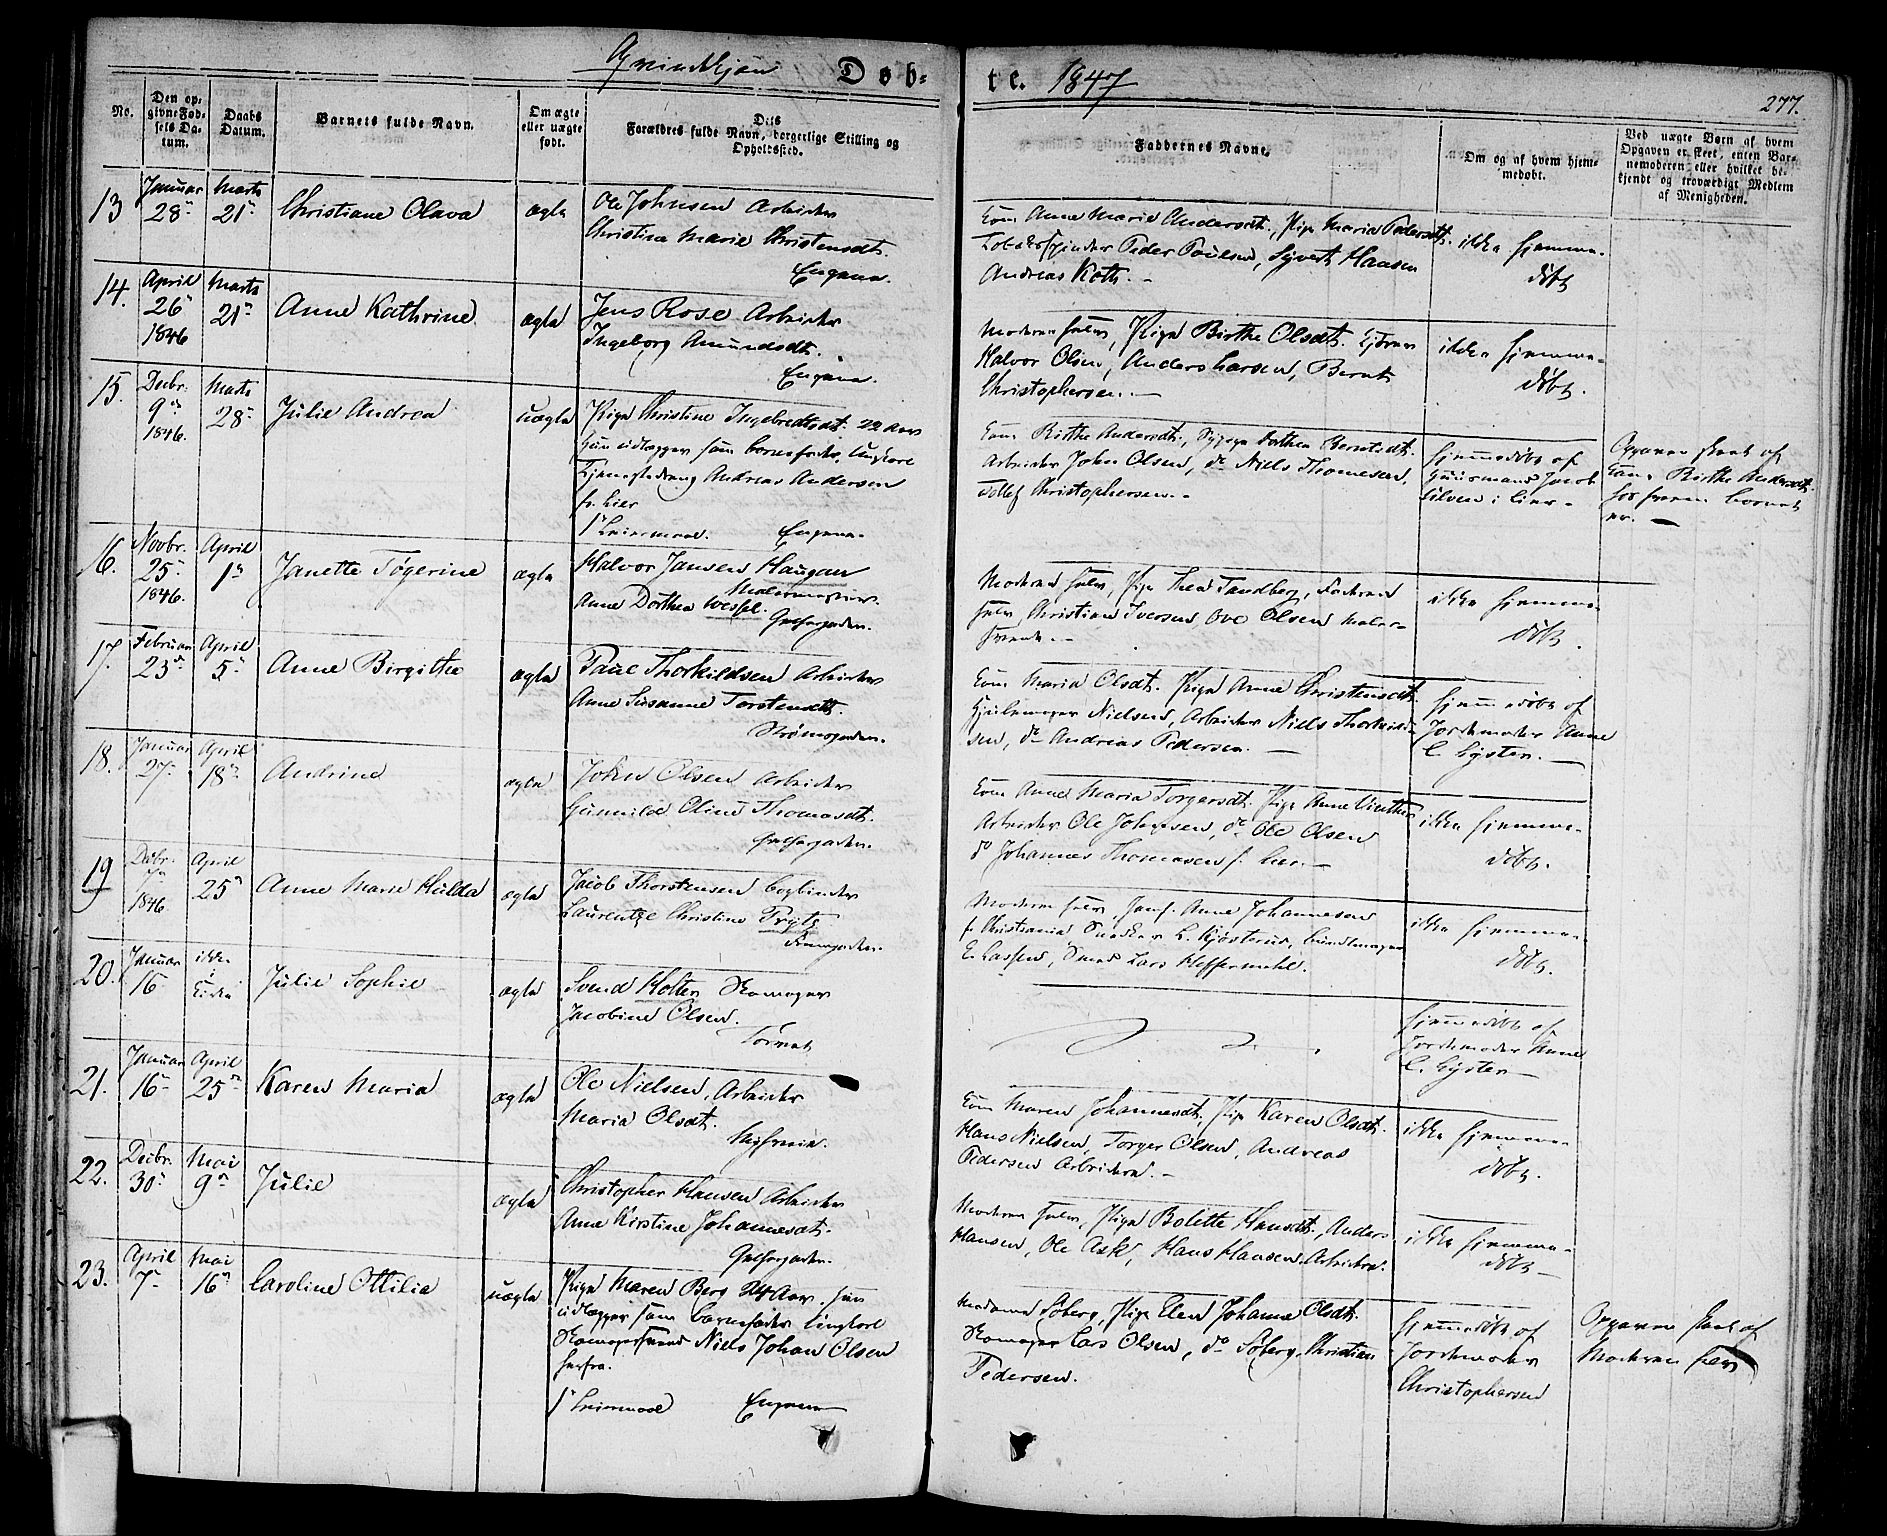 Qvindekjøn Døb-
te. 1847
277.
No.
Den op-
givne Fød-
sels Da-
tum.
Daabs
Datum.
Barnets fulde Navn.
Om ægte
eller uægte
født.
Dets
Forældres fulde Navn, borgerlige Stilling og
Opholdssted.
Faddernes Navne.
Om og af hvem hjem-
medøbt.
Ved uægte Børn af hvem
Opgaven er skeet, enten Bar-
nemoderen eller hvilket be-
kjendt og troværdigt Medlem
af Menigheden.
13
Januar
28
Marts
21
Christiane Olava
ægte
Ole Johnsen Arbeider
Christine Marie Christensdt.
Engene.
Kone Anne Marie Andersdt., Pige Maria Pedersdt.
Peder Poulsen, Syvert Hansen
Andreas Koth.
ikke hjemme-
døbt
14.
April
26
1846
Marts
21
Anne Kathrine
ægte
Jens Rose Arbeider
Ingeborg Amundsdt.
Engene.
Moderen selv, Pige Birthe Olsdt.
Halvor Olsen, Anders Larsen, Bernt
Christophersen.
ikke hjemme-
døbt.
15.
Decbr.
9
1846.
Marts
28
Julie Andrea
uægte
Pige Christine Ingebretsdt. 22 Aar
hun udlægger som barnefader, Ungkarl
Tjenestedreng Andreas Andersen
fr. Lier
1 Leiermaal. Engene.
Kone Birthe Andersdt., Sypige Dorthea Berntsdt.
Arbeider John Olsen, do Niels Thomesen,
Tollef Christophersen.
hjemmedøbt af
Huusmand Jacob
i Lier
Opgaven skeet af
Kone Birthe Andersdt.
16.
Novbr.
25
1846.
April
1
Janette Tøgerine
ægte
Halvor Jansen Haugan
Malermester.
Anne Dorthea Wessel.
Grefsegaden.
Moderen selv, Pige Thea Sandberg, Faderen
selv, Christian Iversen, Ove Olsen Maler-
svend.
ikke hjemme-
døbt.
17.
Februar
23
April
5
Anne Birgithe
ægte
Paul Thorkildsen Arbeider
Anne Susanne Torstensdt.
Strømsgaden.
Kone Maria Olsdt. Pige Anne Christensdt.
Hjulmager Nielsen, Arbeider Niels Thorkild-
sen, do Andreas Pedersen.
hjemmedøbt af
Jordemoder Anne
C. Gysler.
18.
Januar
27
April
18
Andrine
ægte
John Olsen Arbeider
Gunnild Oline Thomasdt.
Grefsegaden.
Kone Anne Maria Torgersdt. Pige Anne Vinther
Arbeider Ole Johnsen, do Ole Olsen
do Johannes Thomesen f. Lier.
ikke hjemme-
døbt.
19
Decbr.
1846
April
25
Anne Marie Hulda
ægte
Jacob Thorstensen bogbinder
Laurentze Christine Frytz
Moderen selv, Jomf. Anne Johannesen
fr. Christiania Snedker L. Kjøsterud, Bundtmager
E. Lassen, Smed Lars Hoffermehl.
ikke hjemme-
døbt.
20.
Januar
16
ikke
i
Kirke
Julie Sophie
ægte
Svend Holter Skomager
Jacobine Olsen.
Tørmet
hjemmedøbt af
Jordemoder Anne
C. Gysler
21.
Januar
16
April
25
Karen Maria
ægte
Ole Nielsen, Arbeider
Maria Olsdt.
Kone Maren Johannesdt., Pige Karen Olsdt.
Hans Nielsen, Torger Olsen, Andreas
Pedersen Arbeidere.
ikke hjemme-
døbt.
22.
Decbr.
30
Mai
9
Julie
ægte
Christopher Hansen Arbeider
Anne Kirstine Johannesdt.
Grefsegaden.
Moderen selv, Pige Bolette Hansdt., Anders
Hansen, Ole Ask, Hans Hansen Arbeidere.
ikke hjemme-
døbt
23.
April
7
Mai
16
Caroline Ottilia
uægte
Pige Maren Berg 24 Aar. hun
udlægger som barnefader Ungkarl
Skomagersvend Niels Johan Olsen
herfra.
1 Leiermaal Engene
Madame Søberg, Pige Elen Johanne Olsdt.
Skomager Lars Olsen, do Søberg, Christian
Pedersen.
hjemmedøbt af
Jordemoder
Christophersen
Opgaven skeet af
Moderen selv